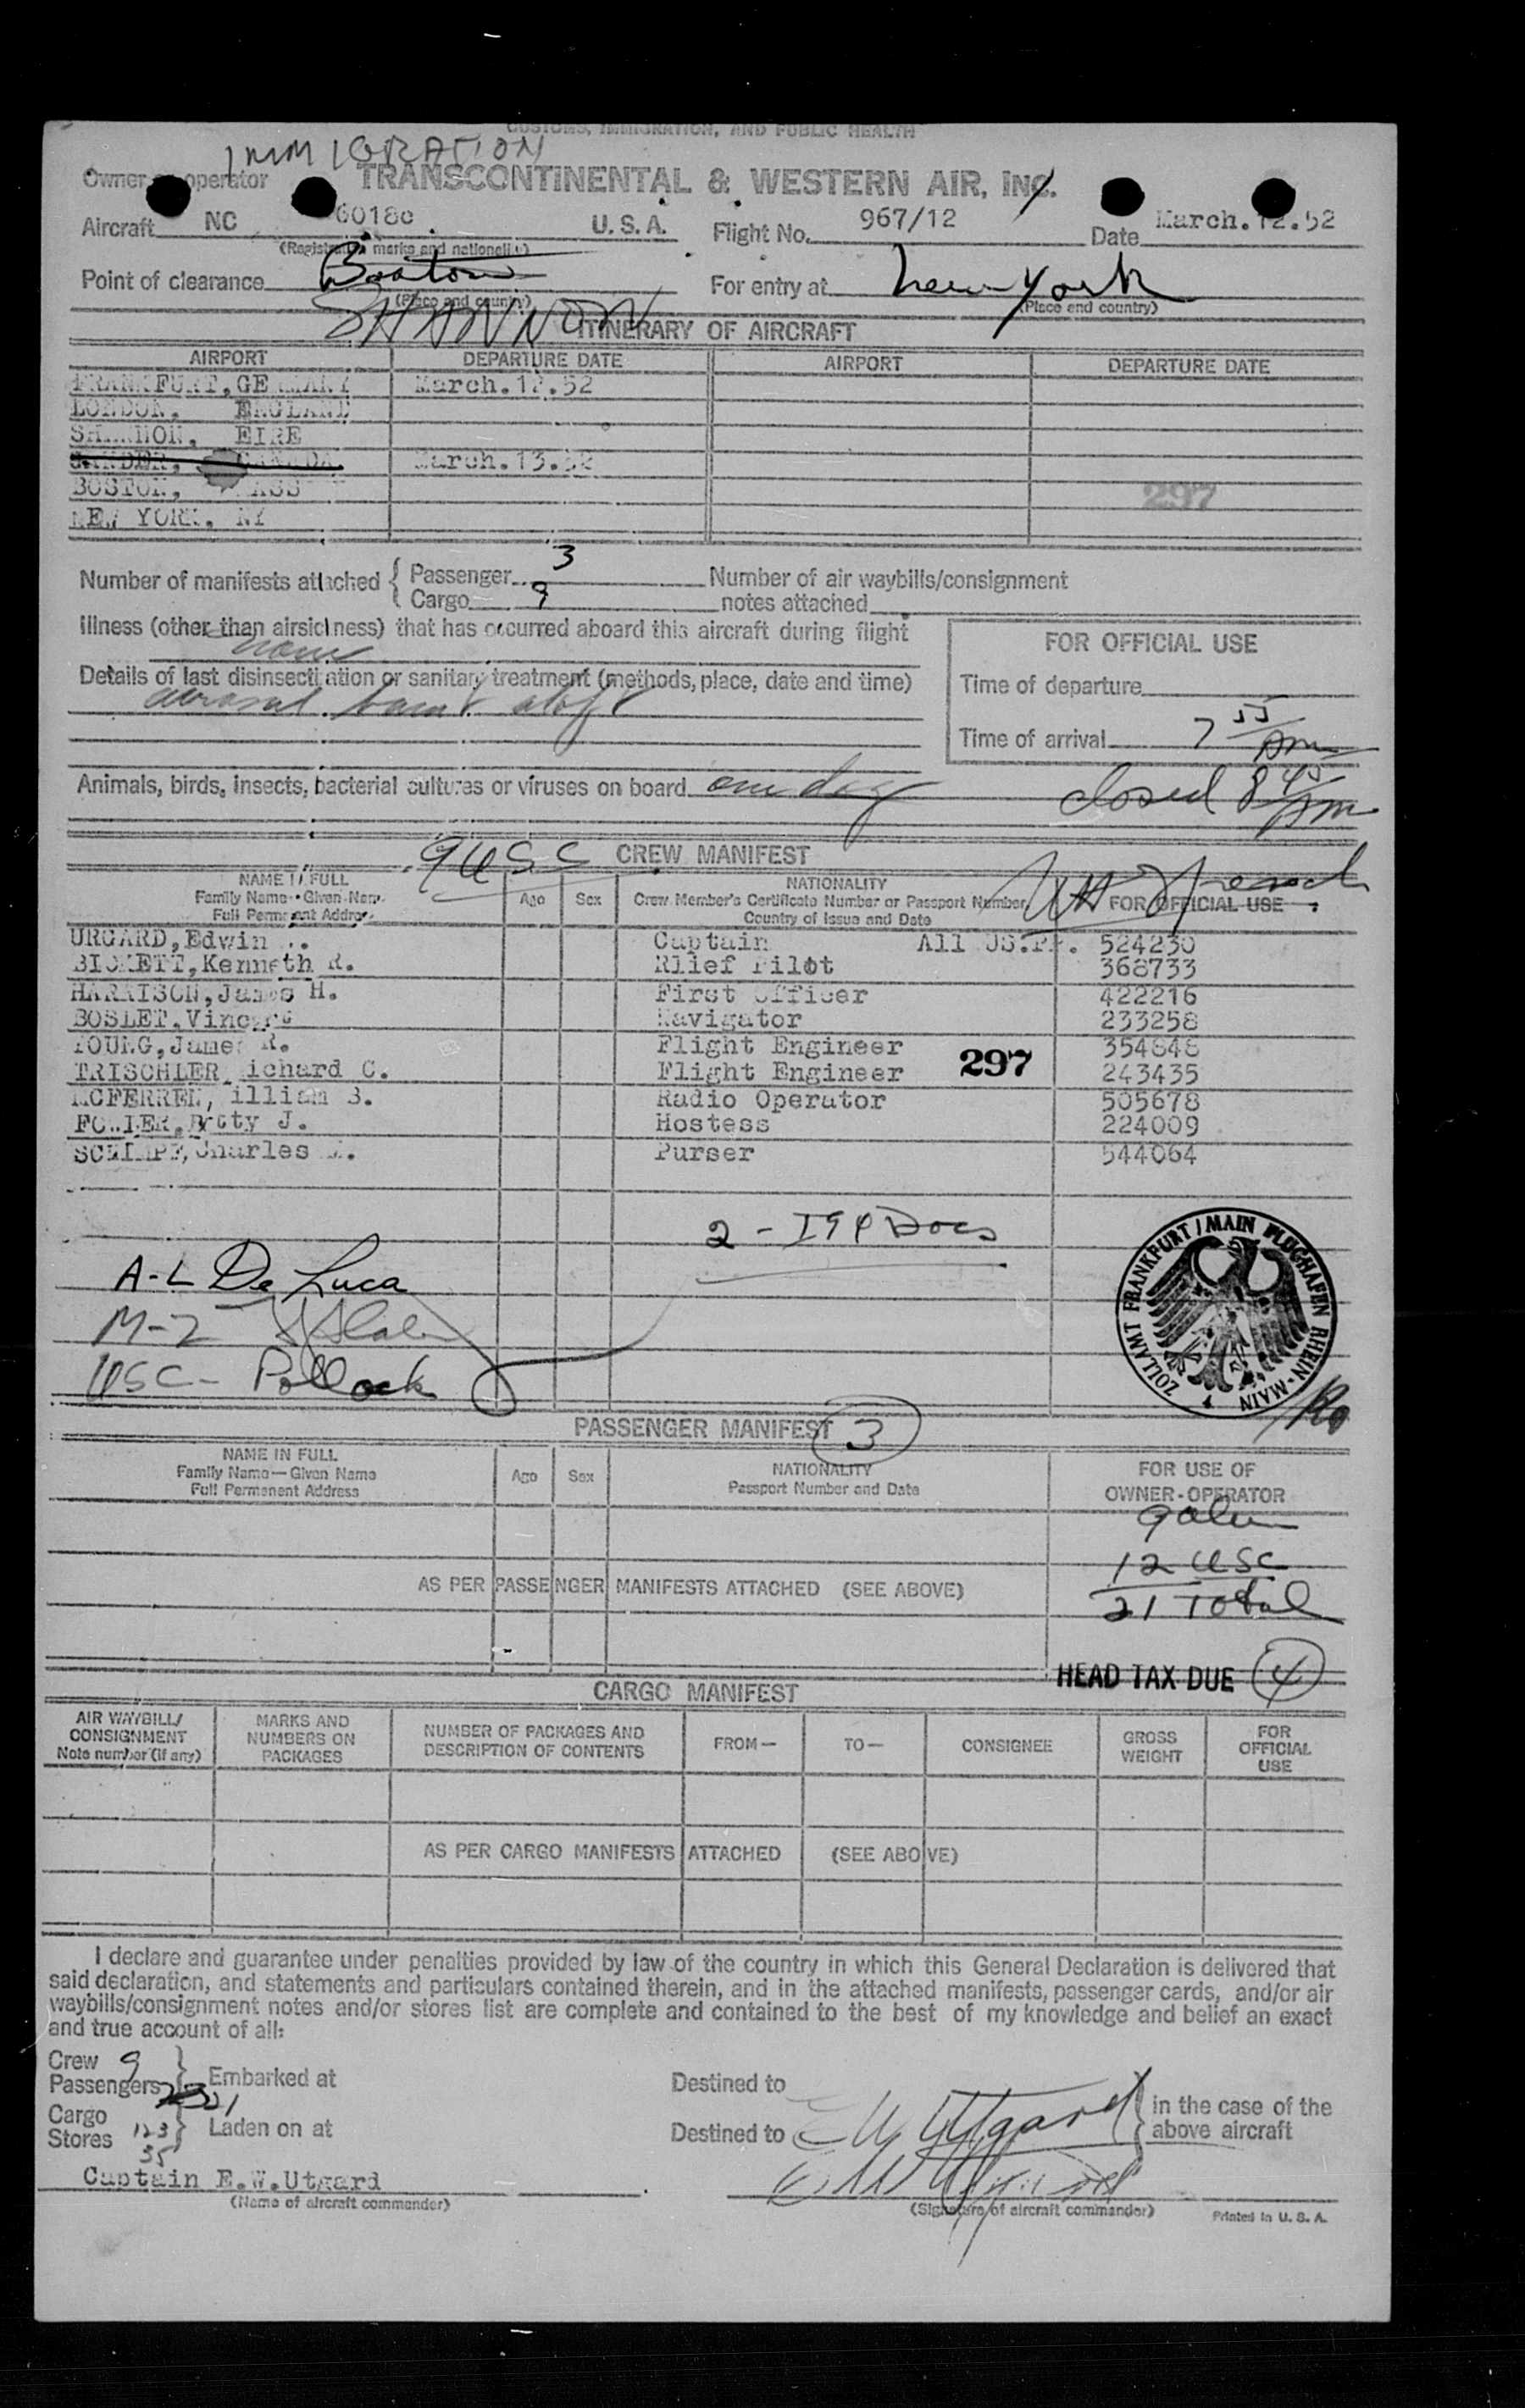 CUSTOMS, IMMIGRATION, AND PUBLIC HEALTH
IMMIGRATION
Owner or operator TRANSCONTINENTAL & WESTERN AIR, INC.
Aircraft NC 6018c U. S. A. Flight No. 967/12 Date March.12.52
(Registration marks and nationality)
Point of clearance Boston For entry at New York
(Place and country) (Place and country)
SHANNON
ITINERARY OF AIRCRAFT
AIRPORT DEPARTURE DATE AIRPORT DEPARTURE DATE
FRANKFURT, GERMANY March.12.52
LONDON, ENGLAND
SHANNON, EIRE
GANDER, CANADA. March.13.52
BOSTON, MASS 297
NEW YORK. NY
Number of manifests attached { Passenger 3 Number of air waybills/consignment
Cargo 9 notes attached
Illness (other than airsickness) that has occurred aboard this aircraft during flight
none
FOR OFFICIAL USE
Details of last disinsectization or sanitary treatment (methods, place, date and time)
aerosol bomb aloft
Time of departure
Time of arrival 7 55 pm
Animals, birds, insects, bacterial cultures or viruses on board one dog
closed 8 45 pm
9 USC CREW MANIFEST
NAME IN FULL
Family Name—Given Name
Full Permanent Address
Age Sex
NATIONALITY
Crew Member's Certificate Number or Passport Number
Country of Issue and Date
FOR OFFICIAL USE
URGARD, Edwin Captain All US.PP. 524230
BICKETT, Kenneth R. Rlief Pilot 368733
HARRISON, James H. First Officer 422216
BOSLET, Vincent Navigator 233258
YOUNG, James R. Flight Engineer 354848
297
TRISCHLER, Richard C. Flight Engineer 243435
MCFERREN, William B. Radio Operator 505678
FOWLER, Betty J. Hostess 224009
Charles Purser 544064
2 - I94 Docs
A-L De Luca
M-2
USC- Pollock
ZOLLAMT FRANKFURT/MAIN FLUGHAFEN RHEIN-MAIN
PASSENGER MANIFEST 3
NAME IN FULL
Family Name—Given Name
Full Permanent Address
Age Sex
NATIONALITY
Passport Number and Date
FOR USE OF
OWNER-OPERATOR
9 alien
12 USC
AS PER PASSENGER MANIFESTS ATTACHED (SEE ABOVE)
21 Total
HEAD TAX DUE 4
CARGO MANIFEST
AIR WAYBILL/
CONSIGNMENT
Note number (if any)
MARKS AND
NUMBERS ON
PACKAGES
NUMBER OF PACKAGES AND
DESCRIPTION OF CONTENTS
FROM— TO— CONSIGNEE
GROSS
WEIGHT
FOR
OFFICIAL
USE
AS PER CARGO MANIFESTS ATTACHED (SEE ABOVE)
I declare and guarantee under penalties provided by law of the country in which this General Declaration is delivered that
said declaration, and statements and particulars contained therein, and in the attached manifests, passenger cards, and/or air
waybills/consignment notes and/or stores list are complete and contained to the best of my knowledge and belief an exact
and true account of all:
Crew 9
Passengers 21 } Embarked at Destined to
Cargo 123
Stores 35 } Laden on at Destined to E W Utgard } in the case of the
above aircraft
Captain E.W.Utgard E W Utgard
(Name of aircraft commander) (Signature of aircraft commander) Printed in U. S. A.